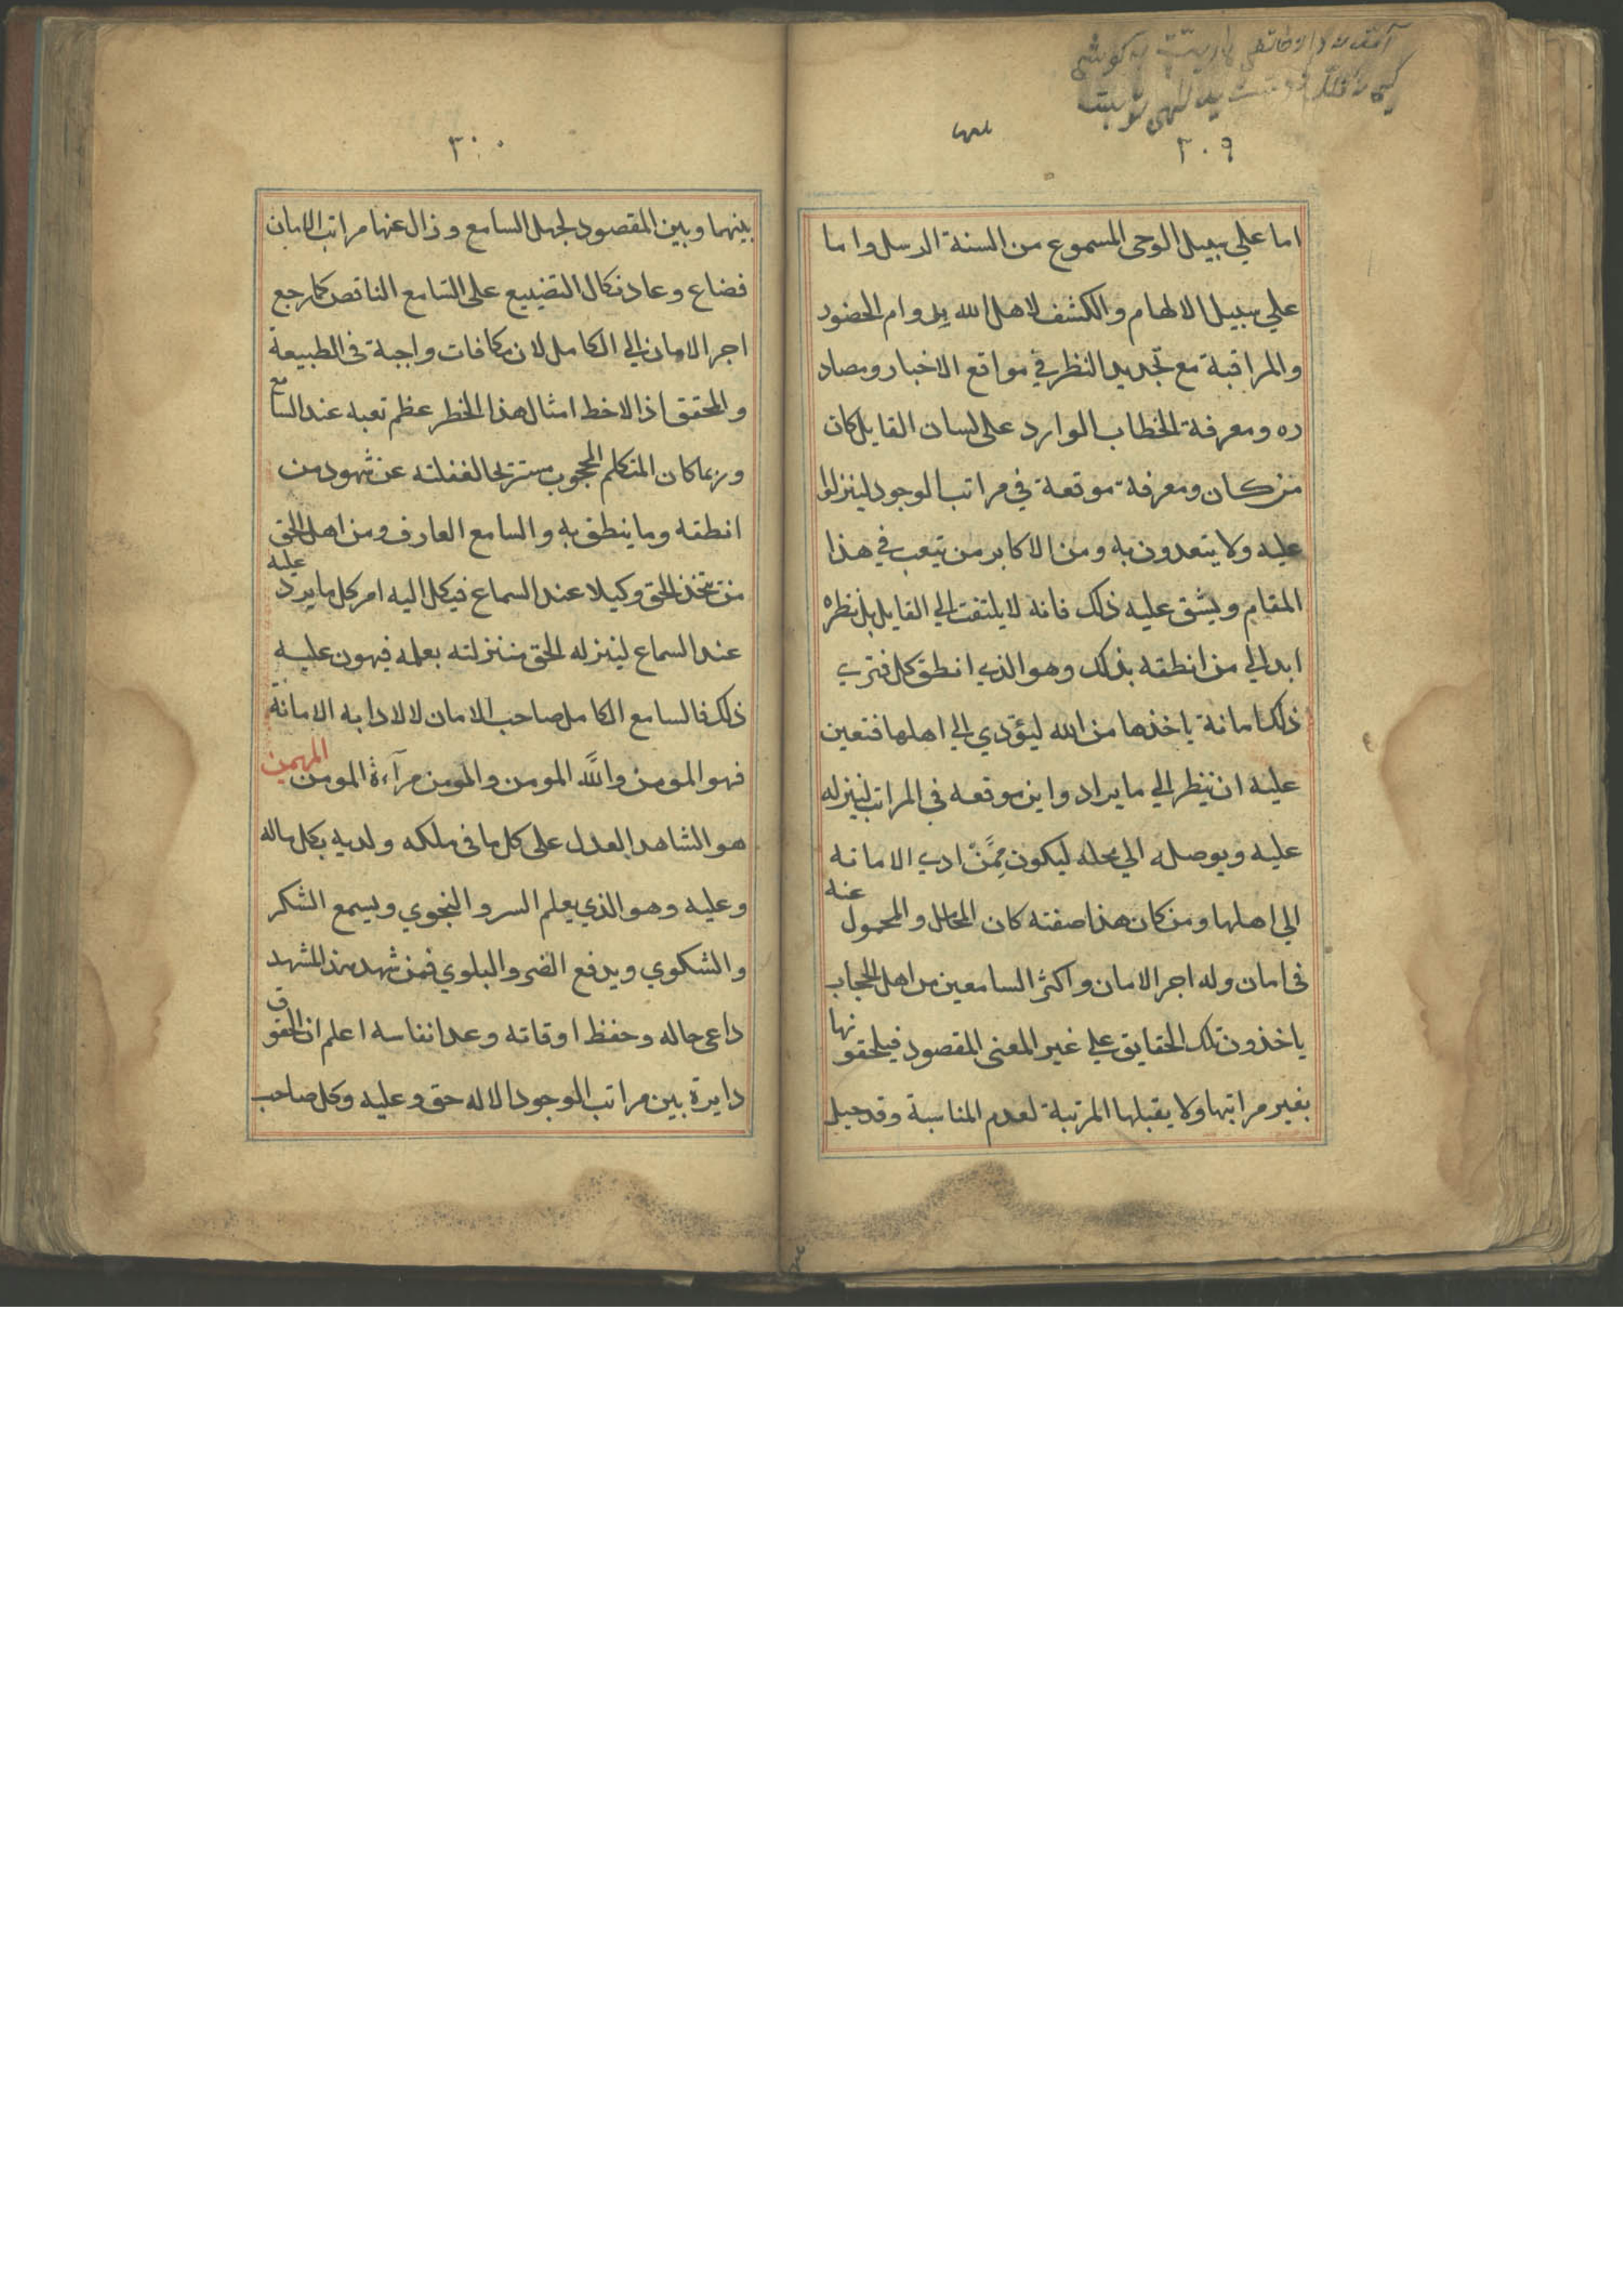 ٢٠٩
اما علي سبيل الوحى المسموع من السنة الرسل واما
علي سبيل الالهام والكشف لاهل الله بدوام الحضور
والمراقبة مع تجديد النظر في مواقع الاخبار ومصاد
ره ومعرفة الخطاب الوارد على لسان القايل كان
من كان ومعرفة موقعة في مراتب الوجود لينزلوا
عليه ولا يتعدون به ومن الاكابر من تيعب في هذا
المقام ويشق عليه ذلك فانه لا يلتفت الي القايل بل نظره
ابدا الي من انطقه بذلك وهو الذي انطق كل فترى
ذلك امانة ياخذها من الله ليؤدي الي اهلها فتعين
عليه ان ينظر الي ما يراد واين موقعه فى المراتب لينزله
عليه ويوصله الي محله ليكون مِمَّنْ ادى الامانه
الي اهلها ومن كان هذا صفته كان المحال والمحمول عنه
فى امان وله اجر الامان واكثر السامعين من اهل الحجاب
ياخذون تلك الحقايق علي غير المعنى المقصود فيلحقونها
بغير مراتبها ولا يقبلها المرتبة لعدم المناسبة وقد حيل
٣٠٠
بينهما وبين المقصود لجهل السامع وزال عنها مراتب الامان
فضاع وعاد نكال التضييع على السامع الناقص كما رجع
اجر الامان الي الكامل لان مكافات واجبة فى الطبيعة
والمحقق اذا لاخط امثال هذا الخطر عظم تعبه عند السامع
وربما كان المتكلم المحجوب مستريحا لغفلته عن شهود من
انطقه وما ينطق به والسامع العارف ومن اهل الحق
من يتخذ الحق وكيلا عند السماع فيكل اليه امر كل ما يرد عليه
عند السماع لينزله الحق منزلته بعلمه فيهون عليه
ذلك فالسامع الكامل صاحب الامان لالادابه الامانة
فهو المومن واللَّه المومن والمومن مرآءة المومن المهيمن
هو الشاهد العدل على كل ما فى ملكه ولديه بكل ماله
وعليه وهو الذي يعلم السر والنجوي ويسمع الشكر
والشكوي ويدفع الضر والبلوي فمن شهد هذ المشهد
داعى حاله وحفظ اوقاته وعد انفاسه اعلم ان الحقوق
دايرة بين مراتب الوجود الا له حق وعليه وكل صاحب